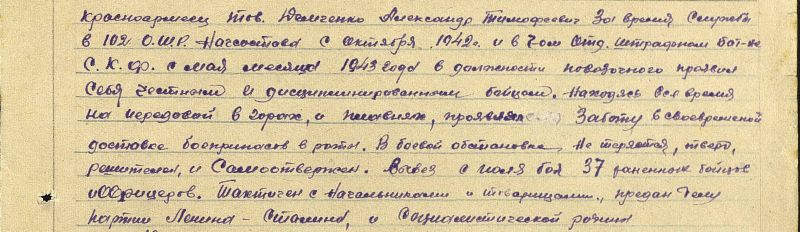 Красноармеец тов. Демченко Александр Тимофеевич За время службы
в 102 О.Ш.Р. Начсостава с октября 1942г. и в 7-ом Отд. штрафном бат-не
С.К.Ф. с мая месяца 1943 года в должности повозочного проявил
себя честным и дисциплинированным бойцом. Находясь все время
на передовой в горах, и плавнях, проявлял Заботу в своевременной
доставке боеприпасов в роты. В боевой обстановке не теряется, тверд,
решителен, и Самоотвержен. Вывез с поля боя 37 раненных бойцов
и Офицеров. Тактичен с Начальниками и товарищами, предан делу
партии Ленина - Сталина, и Социалистической родины